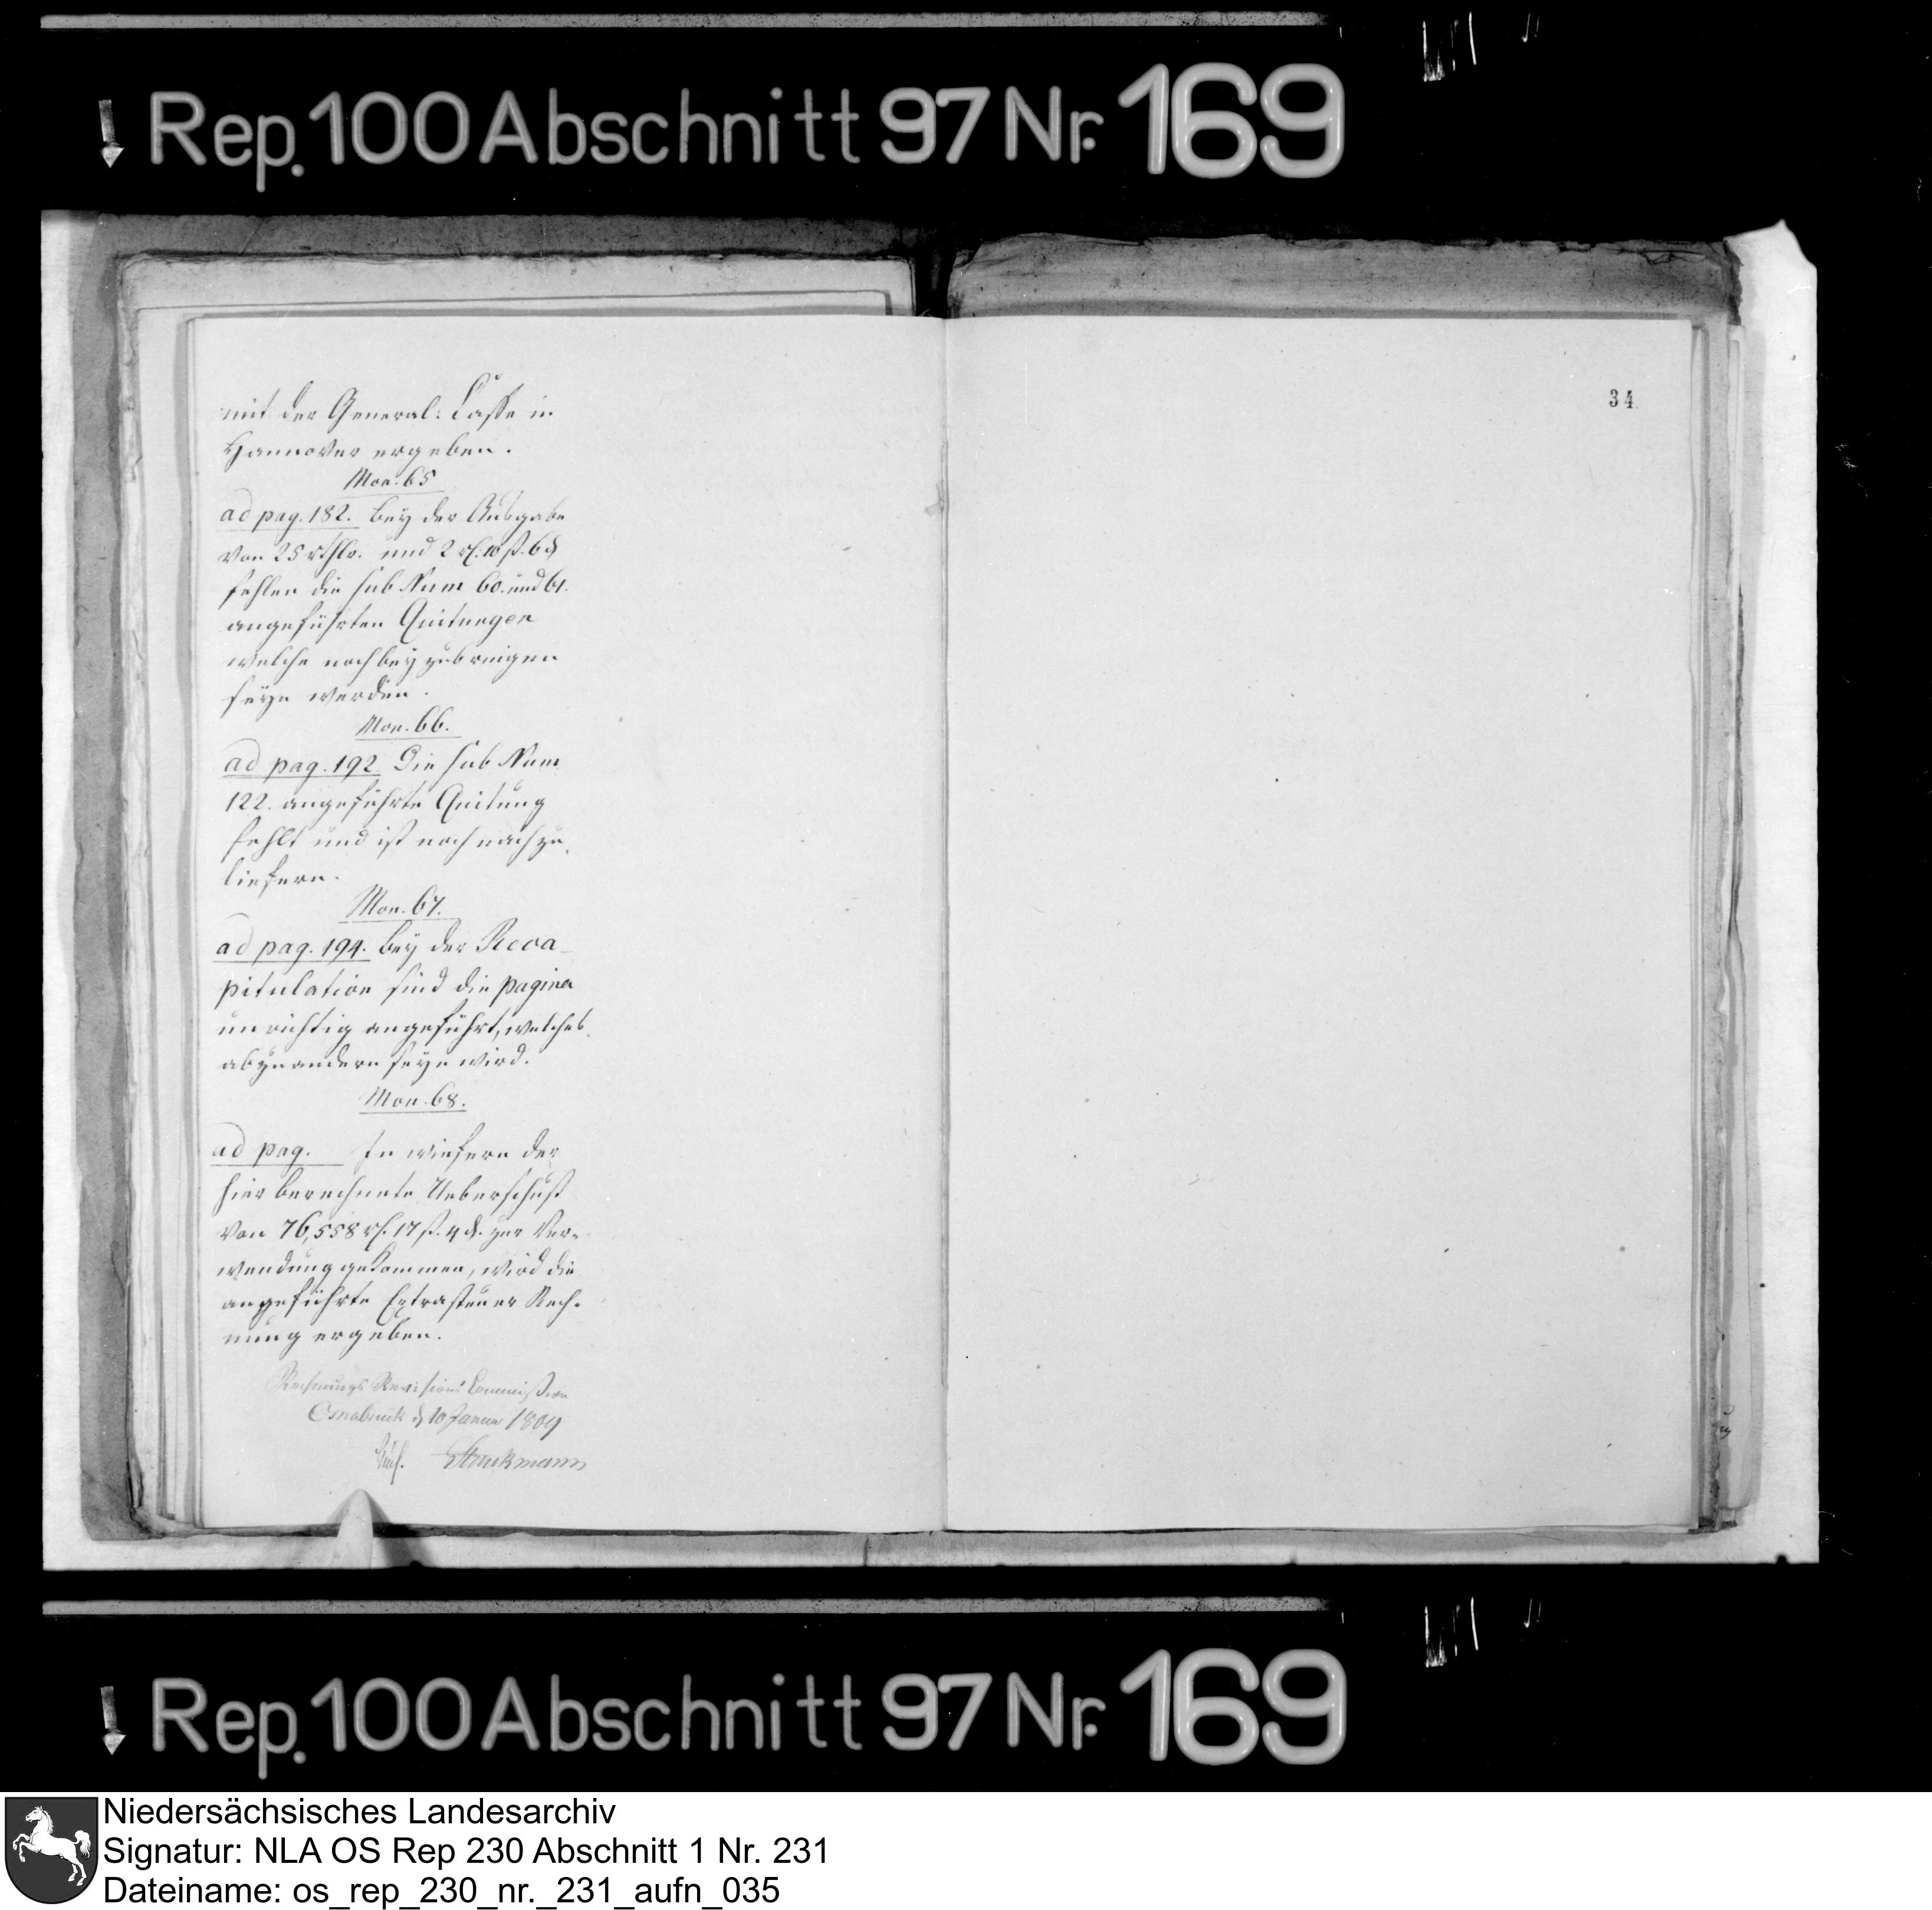 Rep. 100 Abschnitt 97 Nr. 169
mit der General: Casse in
Hannover ergeben.
Mon. 65
ad pag. 182. bey der Ausgabe
von 25 rthlr. und 2 rt. 10 ß. 6 d
fehlen die sub Num 60. und 61.
angeführten Quitungen
welche noch beyzubringen
seyn werden.
Mon. 66.
ad pag. 192. Die sub Num
122. angeführte Quitung
fehlt und ist noch nachzu,
liefern.
Mon. 67.
ad pag. 194. bey der Reca-
pitulation sind die pagina
unrichtig angeführt, welches
abzuandern seyn wird.
Mon. 68.
ad pag. In wiefern der
hier berechnete Ueberschuß
von 76,558 rt. 17 ß. 4 d. zur Ver-
wendung gekommen, wird die
angeführte Extrasteuer Rech-
nung ergeben.
Rechnungs Revisions Commission
Osnabrück d 10 Januar 1809
Struckmann
34
Rep. 100 Abschnitt 97 Nr. 169
Niedersächsisches Landesarchiv
Signatur: NLA OS Rep 230 Abschnitt 1 Nr. 231
Dateiname: os_rep_230_nr._231_aufn_035